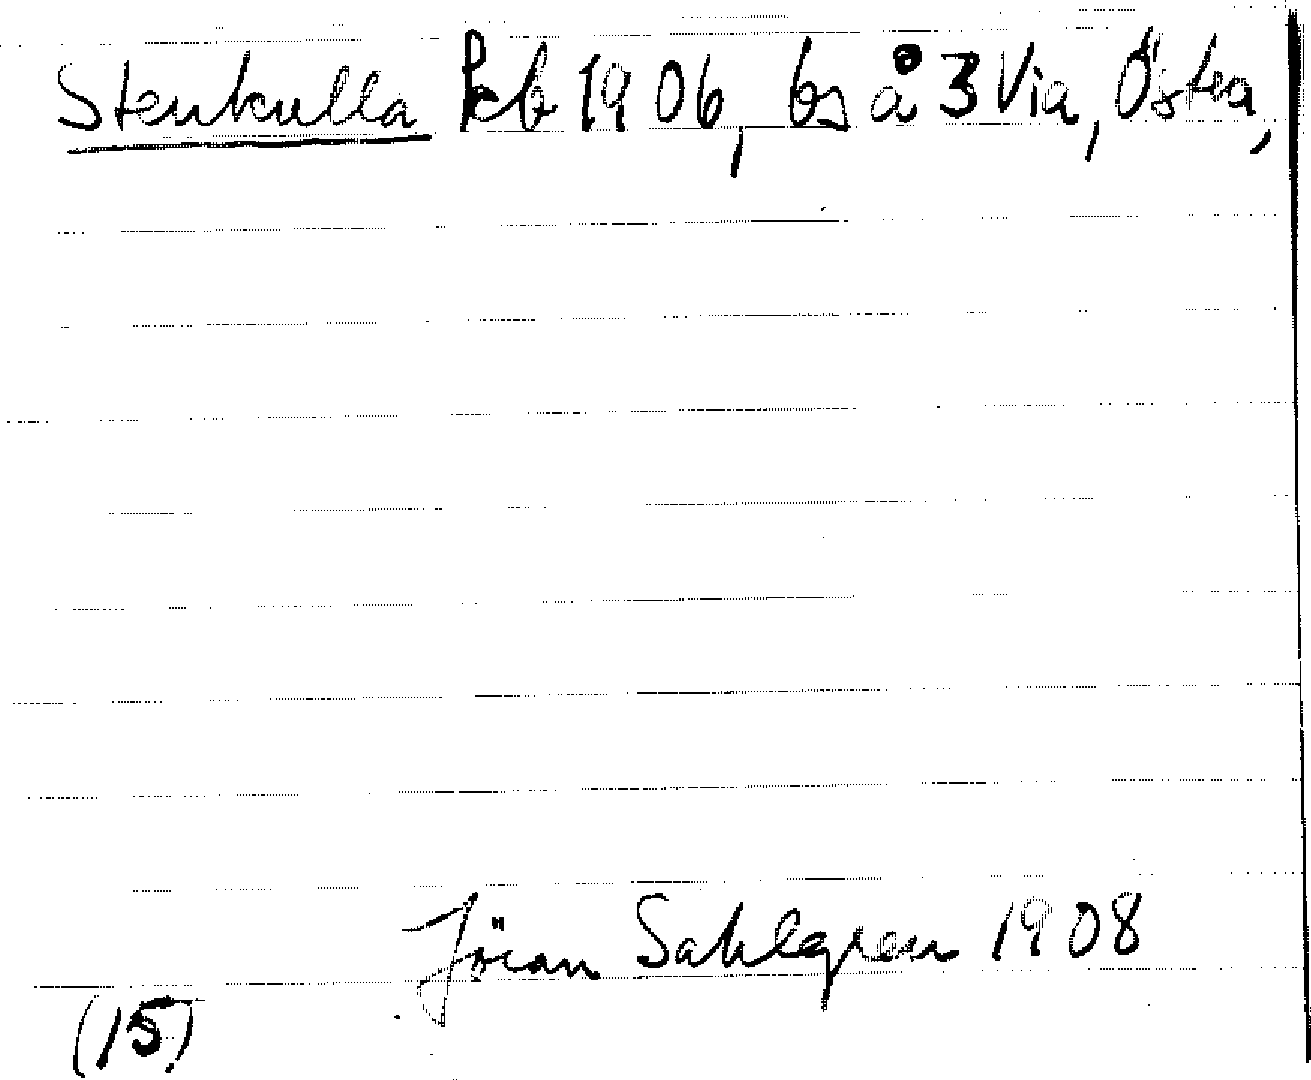 Stenkulla Kb 1906, bs å 3 Via, Östra,
Jöran Sahlgren 1908
(15)